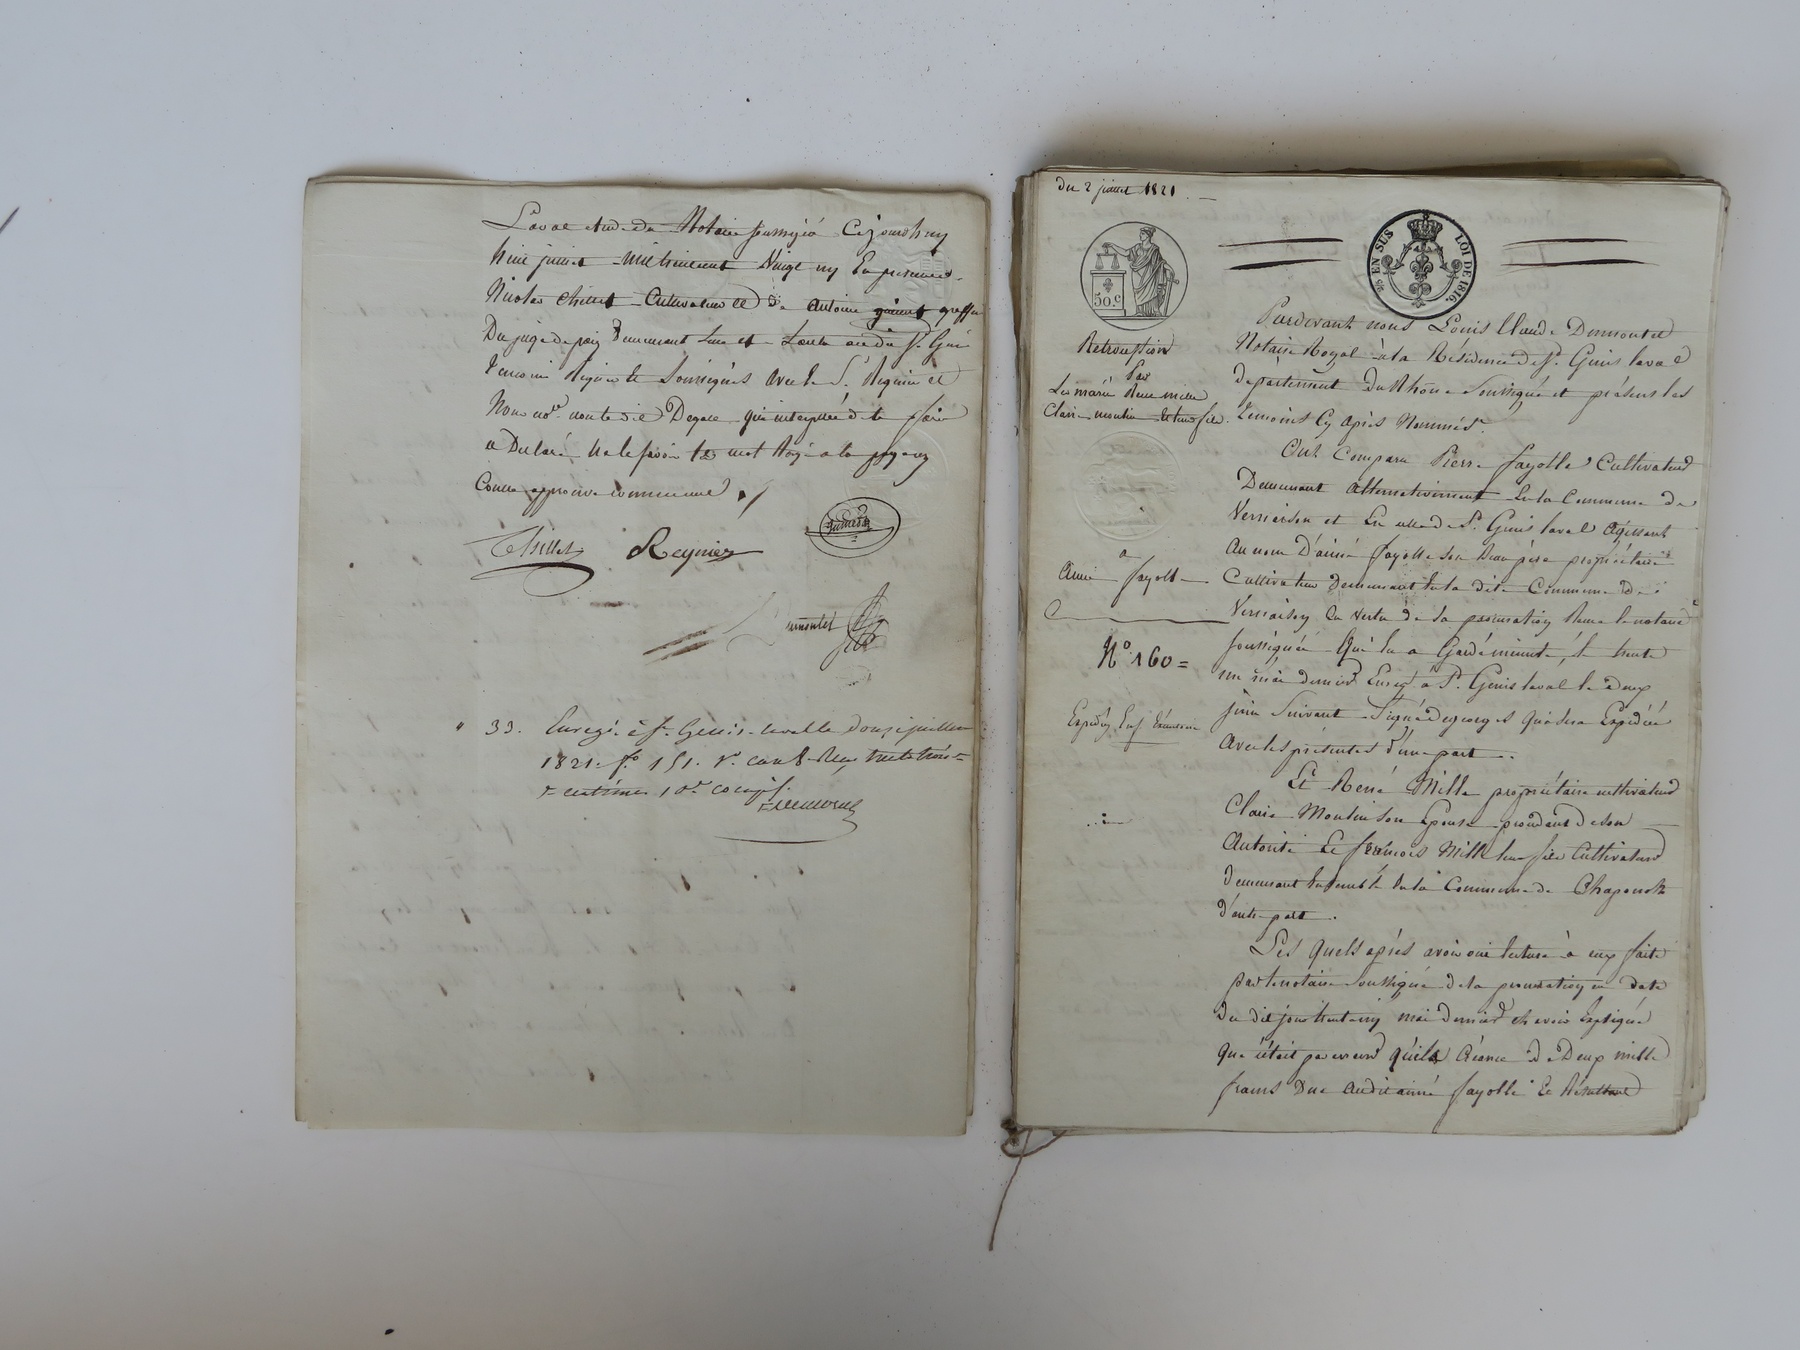 Laval etude du Notaire soussigné Cejourdhuy
juillet mil huit cent vingt un En presence
Nicolas Chillet Cultivateur et de Antoine greffier
Du juge de paix Demeurant tous et St Genis
Soussignés avec le Sr et
Nous nore non ledit Degace qui interpellé de le faire
a Déclaré ne le savoir
Contre approuvé
Chillet Reynier
Dumontet
33. Enregé à St Genis-laval le douze juillet
1821. fo 151. Ro case 8. Reçu trente trois
centimes 10e compris.
Du 2 juillet 1821
50.c
EN SUS LOI DE 1816.
Retrocession
Par
Les mariés René Mille
Claire moulin et leur fils
a
Aimé fayolle
No 160 =
Pardevant nous Louis Claude Dumontet
Notaire Royal à la Résidence de St. Genis laval
Département Du Rhône Soussigné et présens les
temoins Cy après Nommés.
Ont Comparu Pierre fayolle Cultivateur
Demeurant alternativement En la Commune de
Vernaison et En celle de St. Genis laval agissant
au nom D'aimé fayolle son Beau père propriétaire
Cultivateur demeurant En la dite Commune De
Vernaison En vertu de Sa procuration Reçue le notaire
soussigné Qui En a Gardé minute, le trente
un mai dernier Enregé à St. Genis laval le deux
juin Suivant Signé Degeorges Qui sera Expédiée
avec les présentes d'une part.
Et René Mille propriétaire cultivateur
Claire Moulin son Epouse procédant de son
Autorité Et françois Mille leur fils Cultivateur
demeurant Ensemble En la Commune de Chaponost
d'autre part.
Les Quels après avoir oui lecture à eux faite
par le notaire Soussigné de la procuration en date
Du dit jour trente un mai dernier et avoir Expliqué
Que Créance de Deux mille
francs Due audit aimé fayolle Et Résultant